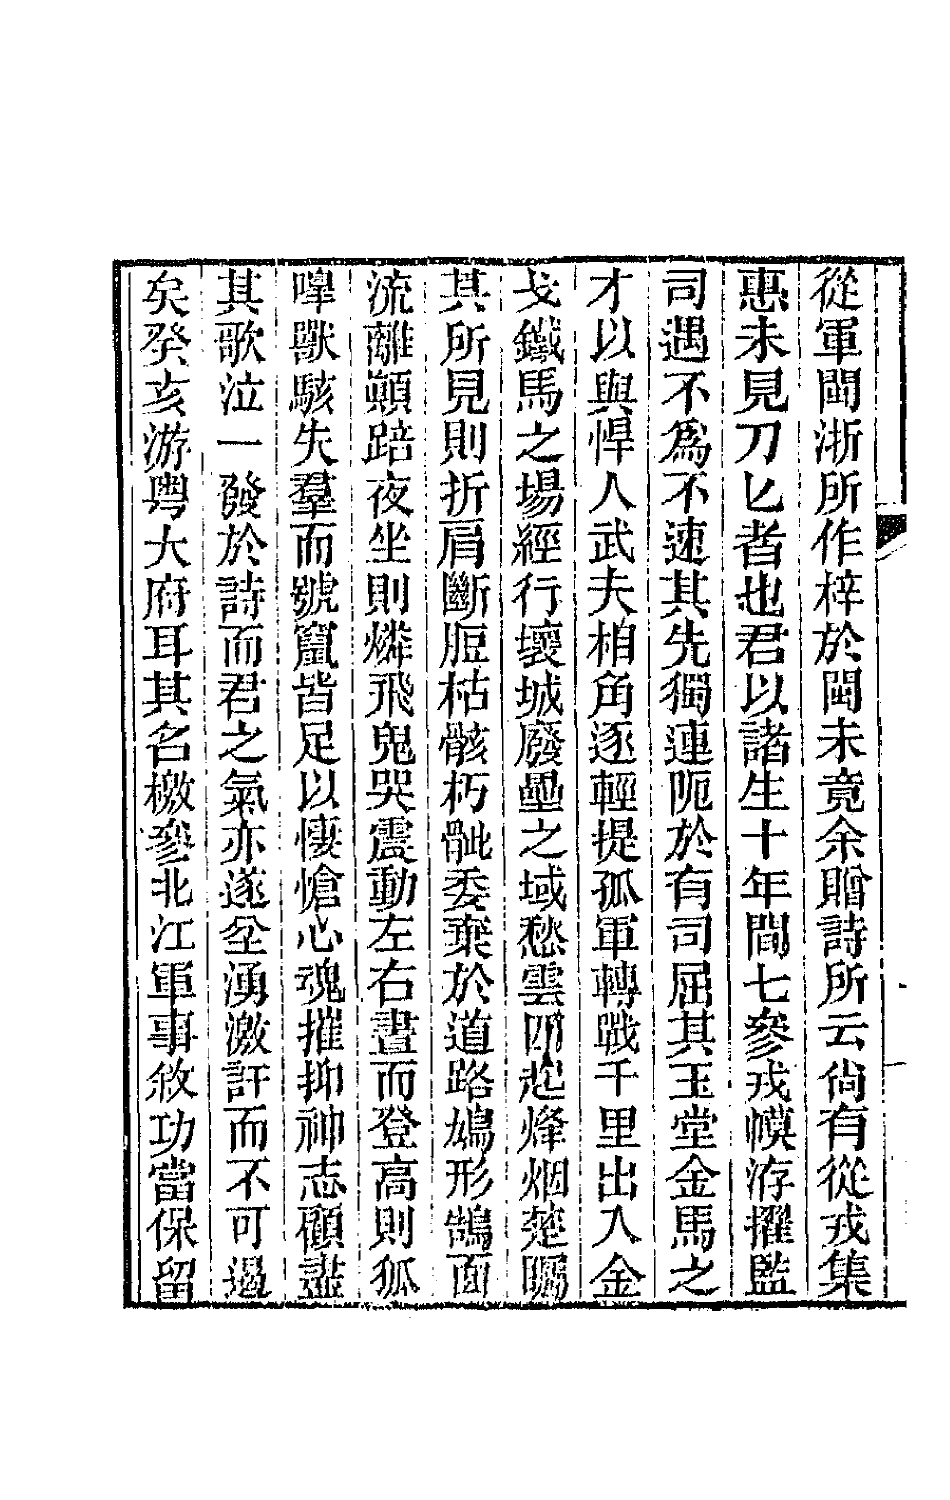 從軍閩浙所作梓於閩未竟余贈詩所云尙有從戎集
惠未見刀匕者也君以諸生十年間七參戎幙洊擢監
司遇不爲不速其先獨連阨於有司屈其玉堂金馬之
才以與悍人武夫相角逐輕提孤軍轉戰千里出入金
戈鐵馬之場經行壞城廢壘之域愁雲四起烽烟楚矚
其所見則折肩斷脰枯骸朽骴委棄於道路鳩形鵠面
流離顚踣夜坐則燐飛鬼哭震動左右晝而登高則狐
嘷獸駭失羣而號竄皆足以悽愴心魂摧抑神志顧盡
其歌泣一發於詩而君之氣亦遂坌湧激訐而不可遏
矣癸亥游粤大府耳其名檄參北江軍事敘功當保留